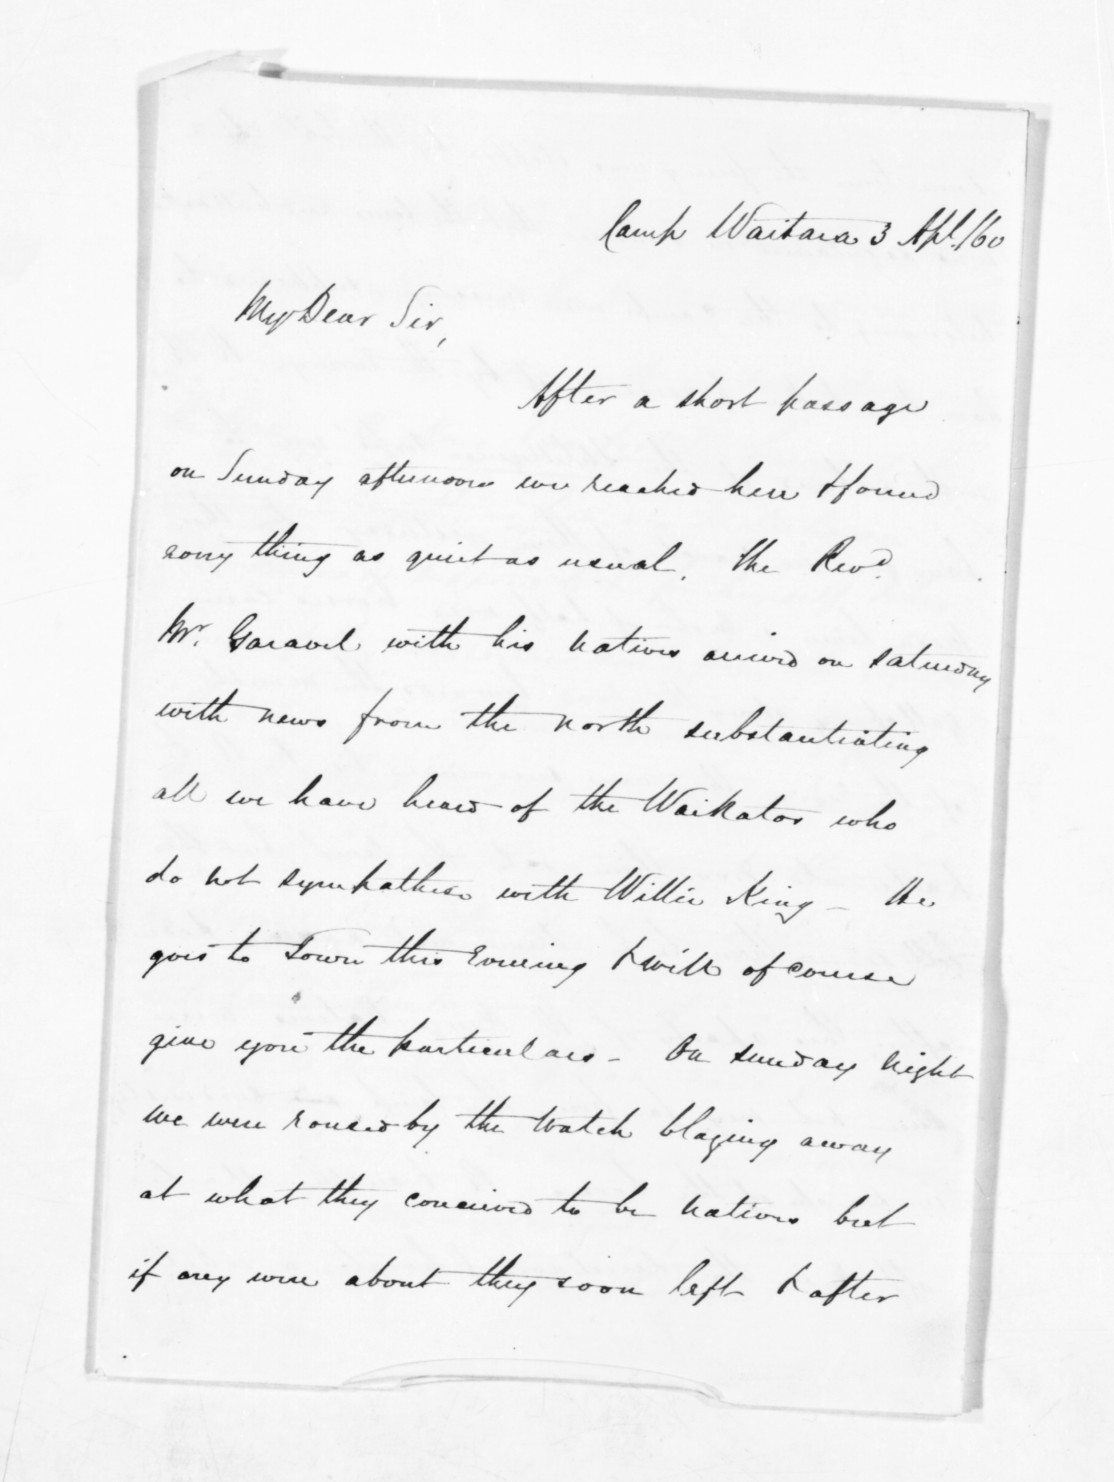 Camp Waitara 3 Apl. /60
My Dear Sir,
After a short passage
on Sunday afternoon we reached here & found
every thing as quiet as usual. The Revd.
Mr. Garavel with his natives arrived on Saturday
with news from the north substantiating
all we have heard of the Waikatos who
do not sympathise with Willie King - He
goes to Town this Evening & will of course
give you the particulars - On Sunday night
we were roused by the watch blazing away
at what they conceived to be natives but
if any were about they soon left & after